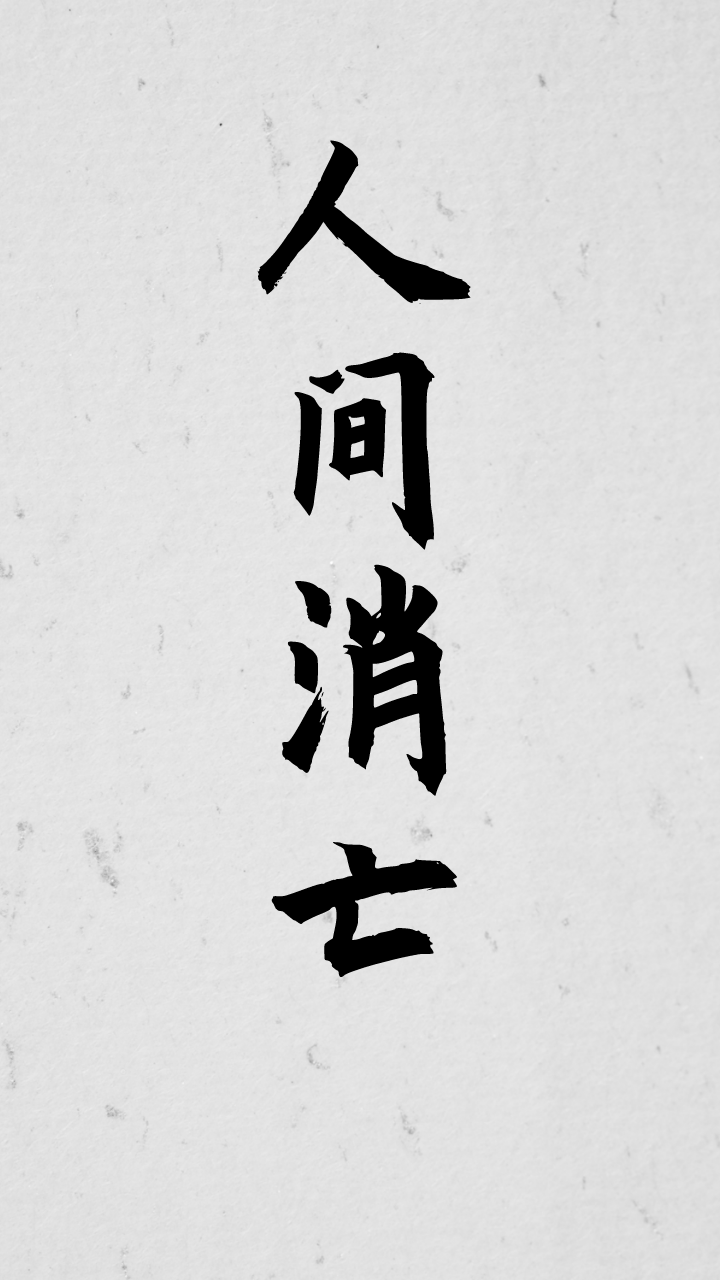 人间消亡